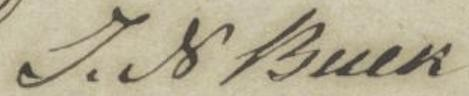 J. N Buck